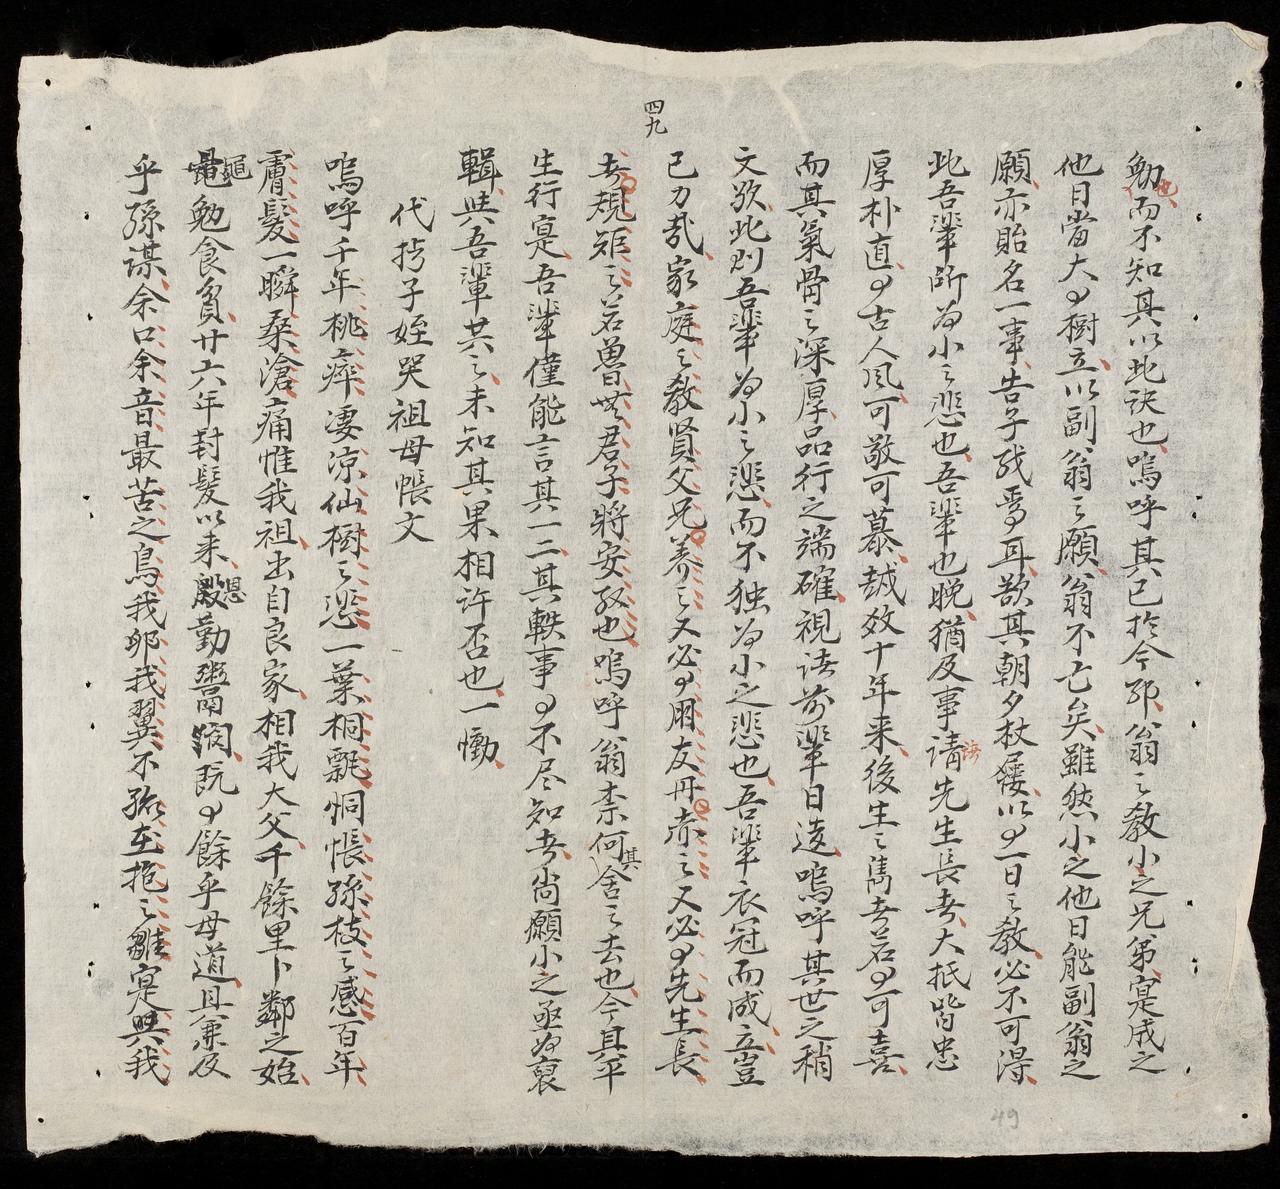 四九
勉也而不知其以此訣也嗚呼其已於今耶翁之教小之兄弟寔成之
他日當大以樹立以副翁之願翁不亡矣雖然小之他日能副翁之
願亦貽名一事告子孫焉耳欲其朝夕杖屨以一日之教必不可得
此吾輩所為小之悲也吾輩也晚猶及事請諸先生長者大抵皆忠
厚朴直古人風可敬可慕越数十年来後生之雋者若可喜
而其氣骨之深厚品行之端確視諸前輩日遠嗚呼其世之稍
文歟此則吾輩為小之悲而不独為小之悲也吾輩衣冠而成立豈
已力哉家庭之教賢父兄养之又必朋友丹赤之又必先生長
者規矩之若魯無君子將安取也嗚呼翁柰何其舍之去也今其平
生行寔吾輩僅能言其一二其軼事不尽知者尚願小之亟為裒
輯與吾輩共之未知其果相許否也一慟
代子姪哭祖母帳文
嗚呼千年桃瘁凄凉仙樹之悲一葉桐飄恫悵孫枝之感百年
膚髮一瞬桑滄痛惟我祖出自良家相我大父千餘里卜鄰之始
黽勉食貧廿六年封髮以来恩勤鬻閔既餘乎母道且兼及
乎孫謀余口余音最苦之鳥我卵我翼不孤在抱之雛寔與我
49